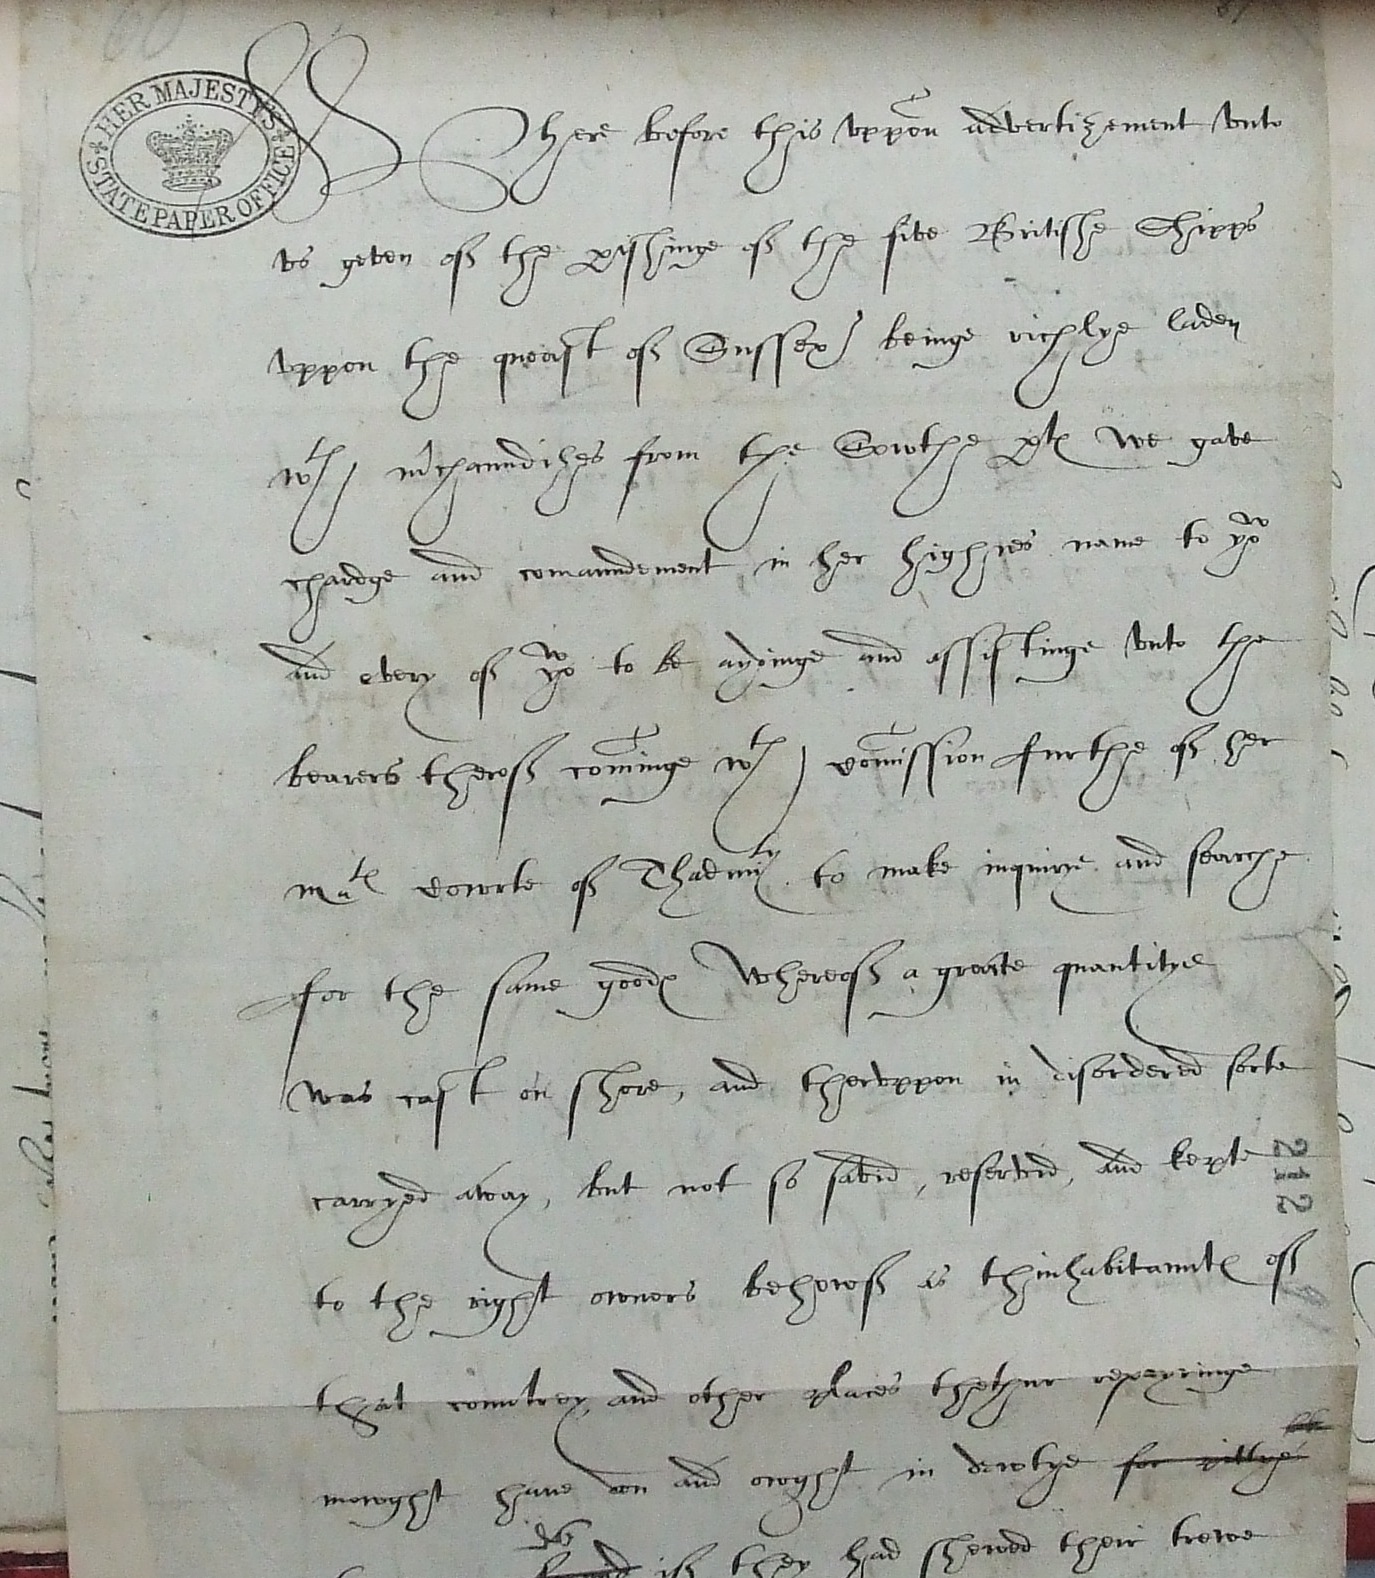 HER MAJESTYS STATE PAPER OFFICE
Where before this uppon advertizement unto
us geven off the perishinge off the five Britishe Shipps
uppon the quoast off Sussex beinge richlye laden
wth mchaundizes from the Sowthe ptes we gave
chardge and comaundement in her highnes name to yow
and every off yow to be aydinge and assistinge unto the
bearers theroff cominge wth comission furthe off her
mates cowrte off Thadmlty to make inquirye and searche
for the same goodes Wheroff a greate quantitye
was cast on shore, and theruppon in disordered sorte
carryed away, but not so saved, reserved, and kepte
to the right owners behowff as thinhabitauntes off
that countrey and other places thether repayringe
mowght have don and owght in dewtye for pittye
iff they had shewed their trewe
212